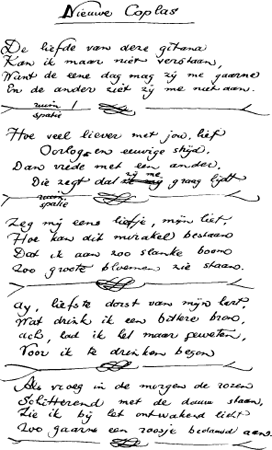 Nieuwe Coplas
De liefde van deze gitana
Kan ik maar niet verstaan,
Want de eene dag mag zij me gaarne
En de ander ziet zij me niet aan.
ruim /
spatie
Hoe veel liever met jou, lief
Oorlog en eeuwige strijd,
Dan vrede met een ander,
Die zegt dat zij me graag lijdt
ruim
spatie
Zeg mij eens liefje, mijn lief,
Hoe kan dit mirakel bestaan
Dat ik aan zoo slanke boom
Zoo groote bloemen zie staan.
Ay, liefste dorst van mijn hert,
Wat drink ik een bittere bron,
ach, had ik het maar geweten,
Voor ik te drinken begon
Als vroeg in de morgen de rozen
Schitterend met de dauw staan,
Zie ik bij het ontwakend licht
Zoo gaarne een roosje bedauwd aan.